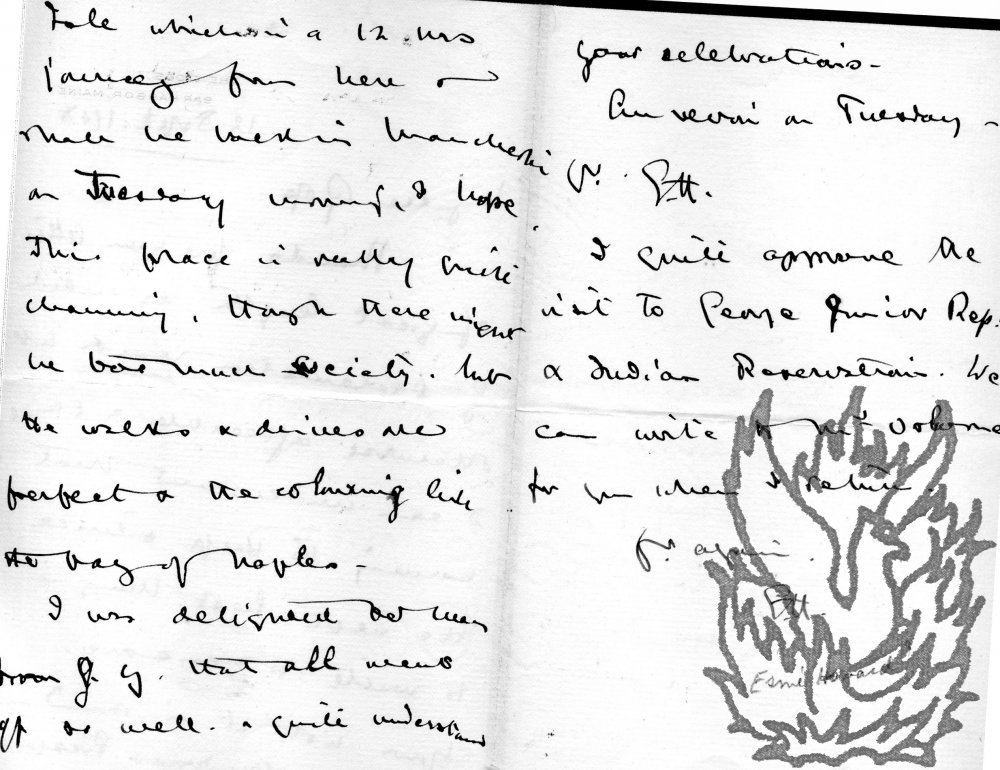 Isle which is a 12 hrs
journey from here &
shall be back in Manchester
on Tuesday morning, I hope
This place is really quite
charming, though there might
be too much society. but
the walks & drives are
perfect & the colouring like
the bay of Naples -
I was delighted to hear
from G. G. that all went
off so well. & quite understand
your celebrations -
Au revoir on Tuesday -
Yr. EH.
I quite approve the
visit to George Junior Rep.
& Indian Reservation. We
can write a volume
for you when I return.
Yr again.
EH.
Esmé Howard